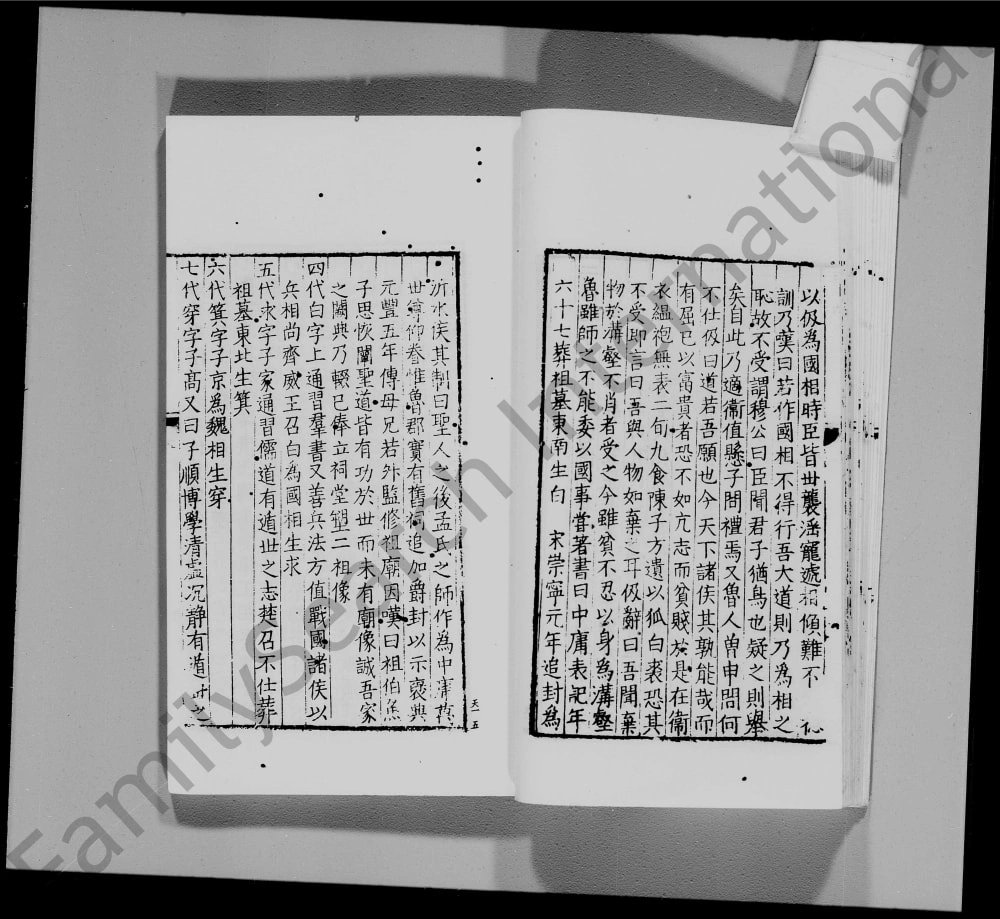 以伋為國相時臣皆世襲滛寵號相傾難不
訓乃歎曰若作國相不得行吾大道則乃為相之
恥故不受謂穆公曰臣聞君子猶鳥也疑之則舉
矣自此乃適衞值懸子問禮焉又魯人曾申問何
不仕伋曰道若吾願也今天下諸侯其孰能哉而
有屈已以富貴者恐不如亢志而貧賤於是在衞
衣緼袍無表二旬九食陳子方遺以狐白裘恐其
不受即言曰吾與人物如棄之耳伋辭曰吾聞棄
物於溝壑不肖者受之今雖貧不忍以身為溝壑
魯雖師之不能委以國事嘗著書曰中庸表記年
六十七葬祖墓東南生白 宋崇寧元年追封為
沂水侯其制曰聖人之後孟氏之師作為中庸
世尊仰眷惟魯郡實有舊祠追加爵封以示褒典
元豐五年傳母兄若外監修祖廟因嘆曰祖伯魚
子思恢闡聖道皆有功於世而未有廟像誠吾家
之闕典乃輟已俸立祠堂塑二祖像
四代白字上通習羣書又善兵法方值戰國諸侯以
兵相尚齊威王召白為國相生求
五代求字子家通習儒道有遁世之志楚召不仕葬
祖墓東北生箕
六代箕字子京為魏相生穿
七代穿字子高又曰子順博學清虛沉靜有遁世之
FamilySearch International